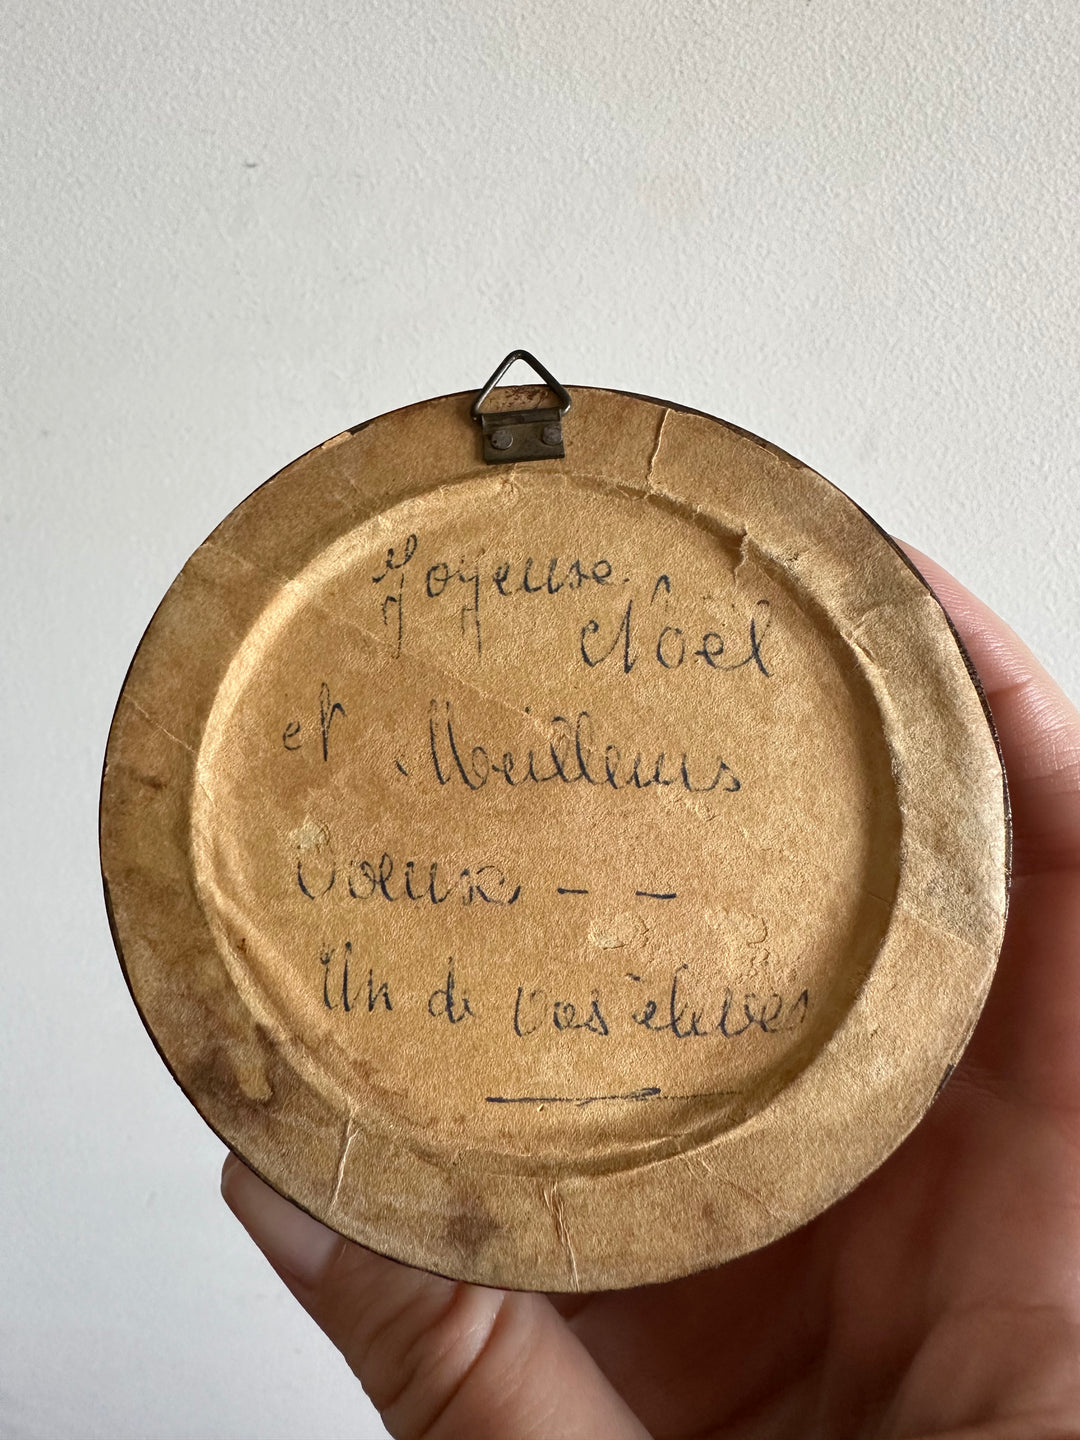 Joyeuse
Noël
et Meilleurs
Voeux - -
Un de vos élèves